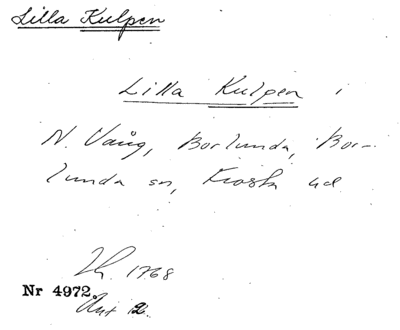 Lilla Kulpen
Lilla Kulpen i
N. Vång, Borlunda, Bor-
lunda sn, Frosta hd
1768
Nr 4972.
Akt 2.